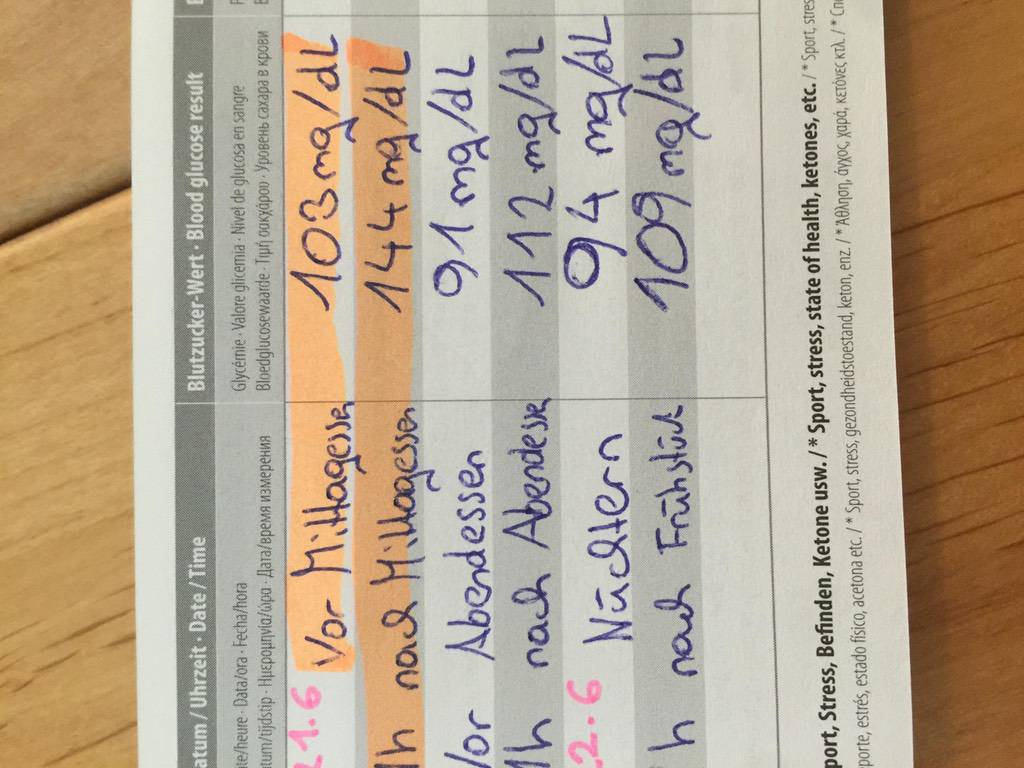 atum / Uhrzeit · Date / Time
Blutzucker-Wert · Blood glucose result
te/heure · Data/ora · Fecha/hora
tum/tijdstip · Ημερομηνία/ώρα · Дата/время измерения
Glycémie · Valore glicemia · Nivel de glucosa en sangre
Bloedglucosewaarde · Τιμή σακχάρου · Уровень сахара в крови
21.6
Vor Mittagessen 103 mg/dL
1h nach Mittagessen 144 mg/dL
Vor Abendessen 91 mg/dL
1h nach Abendessen 112 mg/dL
22.6
Nüchtern 94 mg/dL
h nach Frühstück 109 mg/dL
port, Stress, Befinden, Ketone usw. / * Sport, stress, state of health, ketones, etc. / * Sport, stres
porte, estrés, estado físico, acetona etc. / * Sport, stress, gezondheidstoestand, keton, enz. / * Άθληση, άγχος, χαρά, κετόνες κτλ. / * Сп